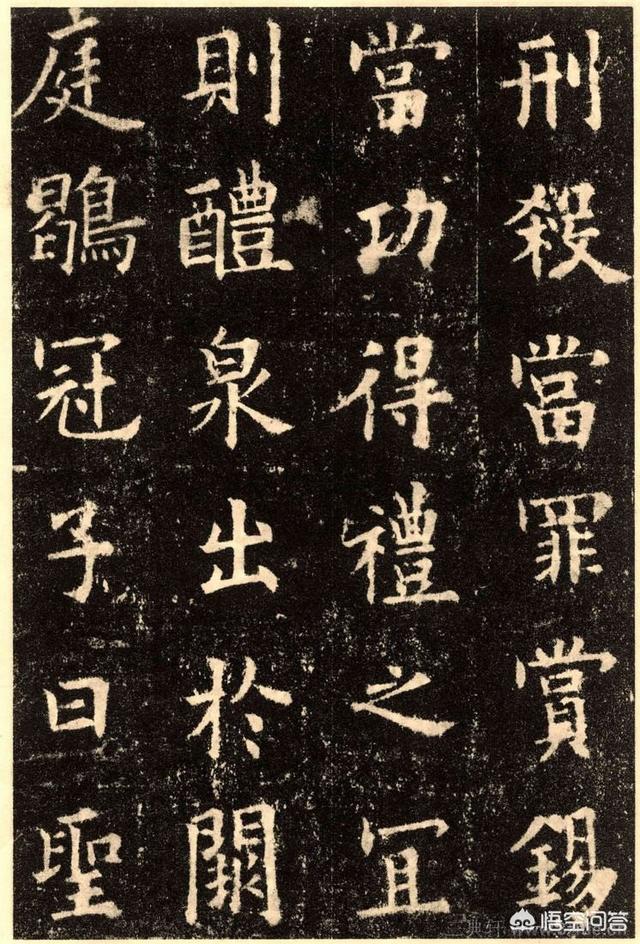 刑殺當罪賞錫
當功得禮之冝
則醴泉出於闕
庭鶡冠子曰聖
悟空问答